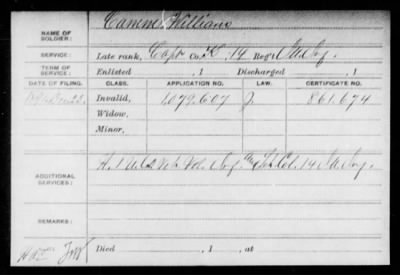 NAME OF SOLDIER: Camm Williams
SERVICE: Late rank, Capt Co. K, 14 Reg't Ia Inf.
TERM OF SERVICE: Enlisted , 1 Discharged , 1
DATE OF FILING. CLASS. APPLICATION NO. LAW. CERTIFICATE NO.
Invalid, 1079.607 J. 861.674
Widow,
Minor,
ADDITIONAL SERVICES: Vol. Inf. Col. 14 Ia Inf.
REMARKS:
Died , 1 , at